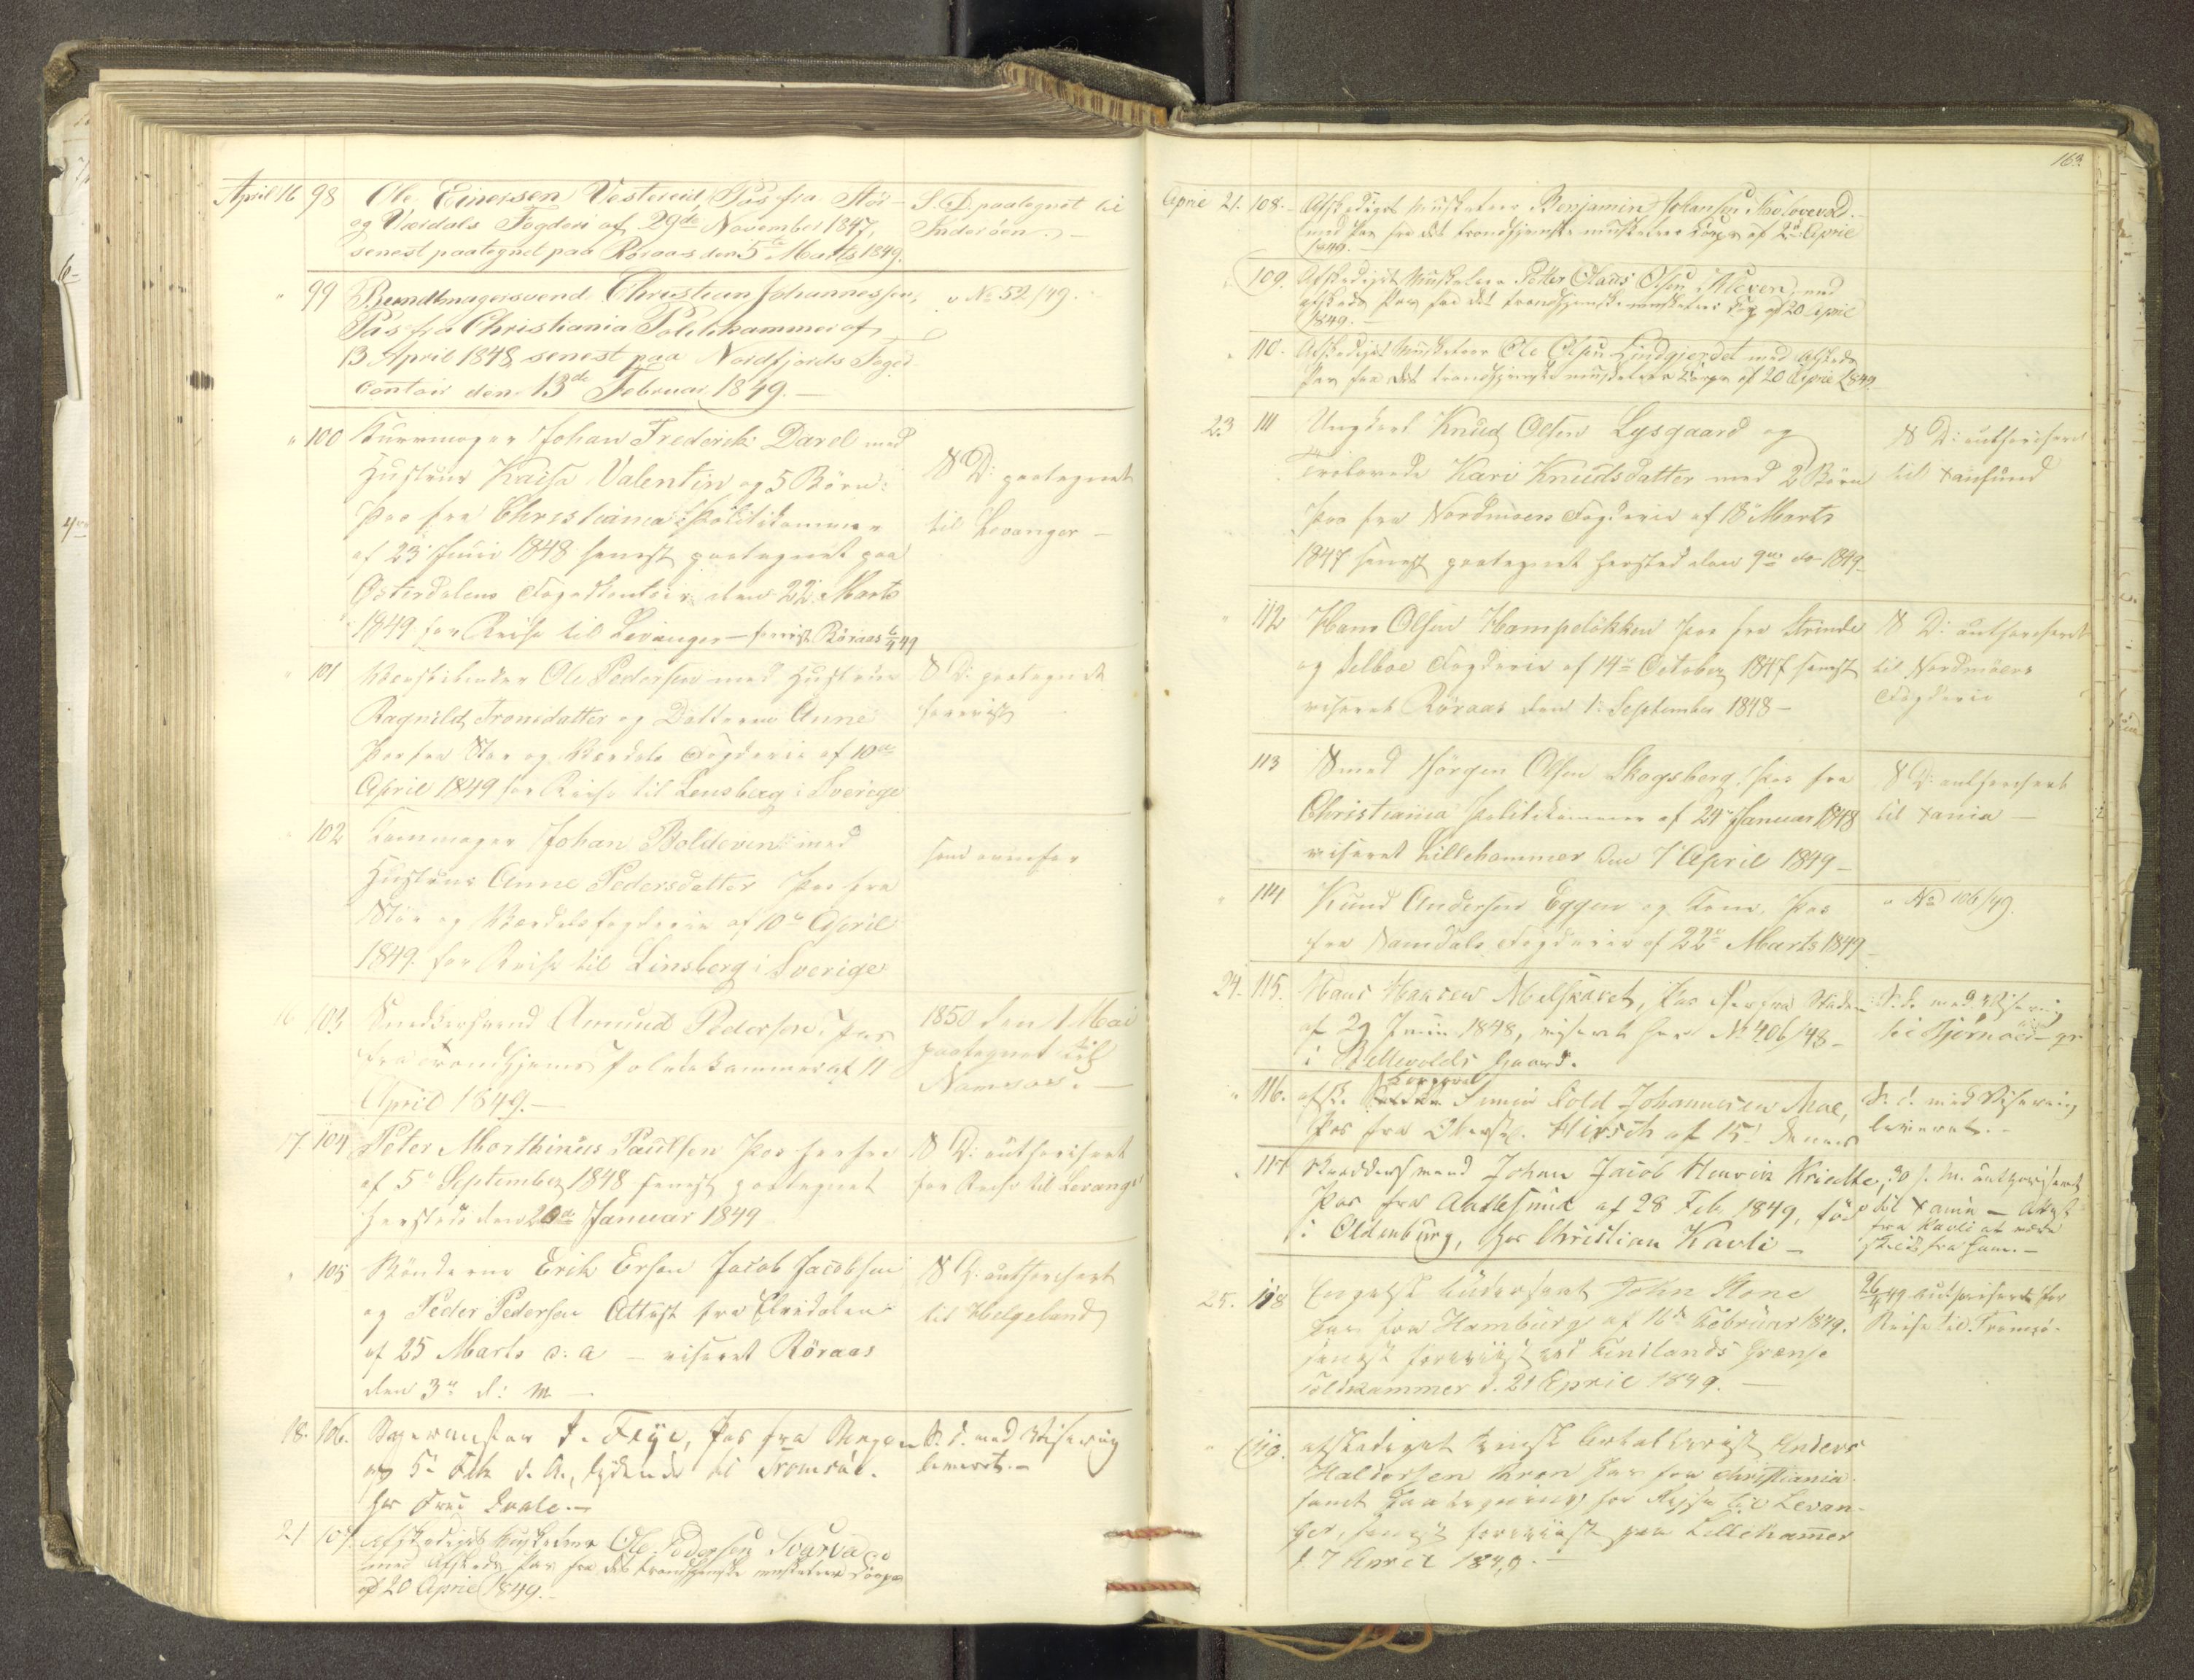 April 16 98 Ole Einersen Vestereid, Pas fra Stör- S. D. paategnet til
og Værdals Fogderi af 29de November 1847, Inderöen.
senest paategnet paa Röraas den 5te Marts 1849.
" 99 Bundtmagersvend Christian Johannessen, v No 52/49.
Pas fra Christiania Politikammer af
13 April 1848, senest paa Nordfjords Foged
contoir den 13de Februar 1849.
" 100 Kurvmager Johan Frederik Darel med
Hustrue Kaisa Valentin og 5 Börn S D: paategnet
Pas fra Christiania Politikammer til Levanger
af 23 Juni 1848 senest paategnet paa
Österdalens Fogedkontoir den 22 Marts
1849 for Reise til Levanger – forevist Röraas 6/4 49
" 101 Ole Pedersen med Hustrue S D: paategnet
Ragnild Tronsdatter og Datteren Anne forevist
Pas fra Stör og Værdals Fogderie af 10de
April 1849 for Reise til Lensberg i Sverige
" 102 Kammager Johan Boldevin med
Hustrue Anne Pedersdatter Pas fra
Stör og Værdals fogderie af 10de April
1849 for Reise til Linsberg i Sverige
16 103 Snedkersvend Amund Pedersen, Pas 1850 den 1 Mai
fra Trondhjems Politikammer af 11 paategnet til
April 1849. Namsos.
17. 104 Peter Morthinus Paulsen Pas herfra S D: authoriseret
af 5te September 1848 senest paategnet for Reise til Levanger
hersteds den 20de Januar 1849
" 105 Bönderne Erik Ersen Jacob Jacobsen S D: authoriseret
og Peder Pedersen Attest fra Elvedalen til Helgeland
af 25 Marts d: a – viseret Röraas
den 3de d: M –
18. 106. J. Frye, Pas fra Bergen S. d. med Visering
af 5te Feb. d. A., lydende til Tromsöe. leveret.
hos Fru
21 107. Afskediget Musketeer Ole Pedersen Svarva
med Afskeds Pas fra det trondhjemske musketeer Corps
af 20 April 1849.
163.
April 21. 108. Afskediget Musketeer Benjamin Johansen
med Pas fra det trondhjemske musketeer Corps af 2 April
1849.
" 109. Afskediget Musketeer Petter Olaus Olsen Kleven, med
afskeds Pas fra det trondhjemske musketeer Corps af 20 April
1849.
" 110. Afskediget Musketeer Ole Olsen Lindgjerdet med Afskeds
Pas fra det trondhjemske musketeer Corps af 20 April 1849
23 111 Ungkarl Knud Olsen Lysgaard og S D: authoriseret
Trolovede Kari Knudsdatter med 2 Börn til Xansund
Pas fra Nordmöers Fogderie af 18 Marts
1847 senest paategnet hersted den 9de do 1849
" 112 Hans Olsen Hampelökken Pas fra Strinde S D: authoriseret
og Selboe Fogderie af 14de October 1847 senest til Nordmöers
viseret Röraas den 1 September 1848 – Fogderie
113 Smed Jörgen Olsen Skogsberg Pas fra S D: authoriseret
Christiania Politikammer af 24 Januar 1848 til Xania –
viseret Lillehammer den 7 April 1849 –
" 114 Knud Andersen Eggen og Kone, Pas v No 106/49.
fra Namdals Fogderie af 22de Marts 1849
24. 115. Hans Hansen Melskaret, Pas S. d. med Visering
af 29 Juni 1848, viseret her No 406/48 – til
i Bellevolds Gaard.
" 116. afsk. Johannesen Moe, S. d. med Visering
Pas fra Oberst Hirsch af 15 dennes leveret.
" 117 Johan Jacob Hinrich Kriedte, 30 s. M. authoriseret
Pas fra af 28 Feb 1849, föd til Xania – Attest
i Oldenburg, hos Christian Kavli – fra Kavli at være
skilt fra ham. –
25. 118 Engelsk Undersaat John Stone 26/4 49 authoriseret for
Pas fra Hamburg af 16de Februar 1849. Reise til Tromsö.
senest foreviist ved Svinlands Grænse
Toldkammer d. 21 April 1849.
" 119. afskediget Anders
Haldorsen Kron Pas fra Christiania
samt Paategning for Reise til Levan-
ger, senest foreviist paa Lillehamer
d. 7 April 1849.